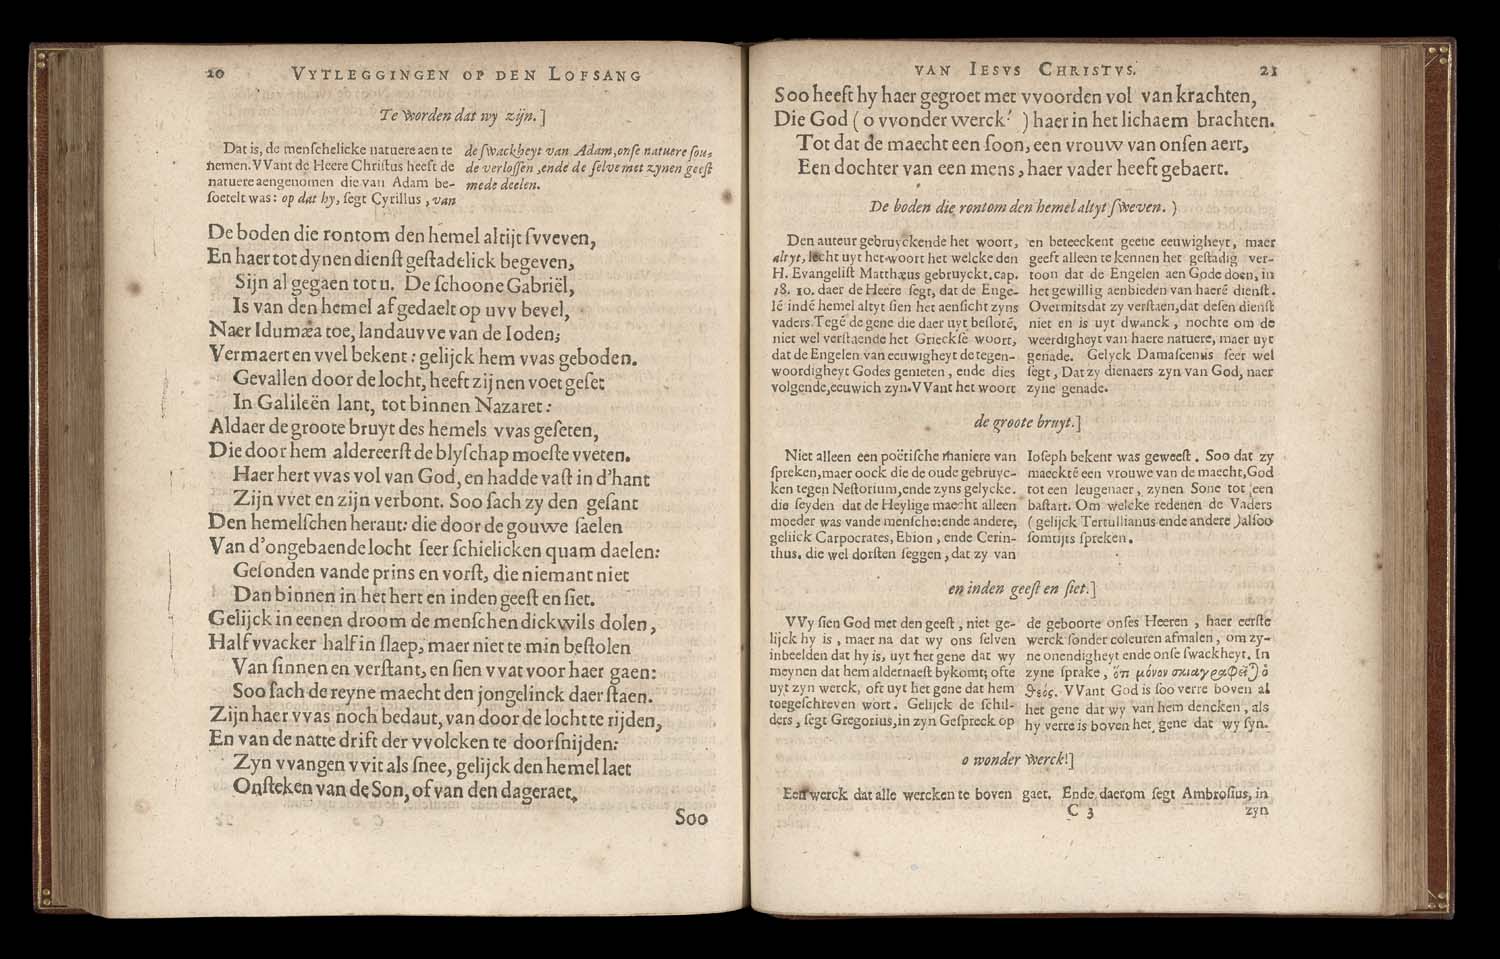 20 VYTLEGGINGEN OP DEN LOFSANG
Te worden dat wy zijn.]
Dat is, de menſchelicke natuere aen te
nemen. VVant de Heere Chriſtus heeft de
natuere aengenomen die van Adam be-
ſoetelt was: op dat hy, ſegt Cyrillus, van
de ſwackheyt van Adam, onſe natuere ſou-
de verloſſen, ende de ſelve met zynen geeſt
mede deelen.
De boden die rontom den hemel altijt ſvveven,
En haer tot dynen dienſt geſtadelick begeven,
Sijn al gegaen tot u. De ſchoone Gabriël,
Is van den hemel af gedaelt op uvv bevel,
Naer Idumæa toe, landauvve van de Ioden;
Vermaert en vvel bekent: gelijck hem vvas geboden.
Gevallen door de locht, heeft zijnen voet geſet
In Galileën lant, tot binnen Nazaret:
Aldaer de groote bruyt des hemels vvas geſeten,
Die door hem aldereerſt de blyſchap moeſte vveten.
Haer hert vvas vol van God, en hadde vaſt in d'hant
Zijn vvet en zijn verbont. Soo ſach zy den geſant
Den hemelſchen heraut: die door de gouwe ſaelen
Van d'ongebaende locht ſeer ſchielicken quam daelen:
Geſonden vande prins en vorſt, die niemant niet
Dan binnen in het hert en inden geeſt en ſiet.
Gelijck in eenen droom de menſchen dickwils dolen,
Half vvacker half in ſlaep, maer niet te min beſtolen
Van ſinnen en verſtant, en ſien vvat voor haer gaen:
Soo ſach de reyne maecht den jongelinck daer ſtaen.
Zijn haer vvas noch bedaut, van door de locht te rijden,
En van de natte drift der vvolcken te doorſnijden:
Zyn vvangen vvit als ſnee, gelijck den hemel laet
Onſteken van de Son, of van den dageraet,
Soo
VAN IESVS CHRISTVS. 21
Soo heeft hy haer gegroet met vvoorden vol van krachten,
Die God (o vvonder werck! ) haer in het lichaem brachten.
Tot dat de maecht een ſoon, een vrouw van onſen aert,
Een dochter van een mens, haer vader heeft gebaert.
De boden die rontom den hemel altyt ſweven. )
Den auteur gebruyckende het woort,
altyt, lecht uyt het woort het welcke den
H. Evangeliſt Matthæus gebruyckt. cap.
18. 10. daer de Heere ſegt, dat de Enge-
lē indē hemel altyt ſien het aenſicht zyns
vaders. Tegē de gene die daer uyt beſlotē,
niet wel verſtaende het Grieckſe woort,
dat de Engelen van eeuwigheyt de tegen-
woordigheyt Godes genieten, ende dies
volgende, eeuwich zyn. VVant het woort
en beteeckent geene eeuwigheyt, maer
geeft alleen te kennen het geſtadig ver-
toon dat de Engelen aen Gode doen, in
het gewillig aenbieden van haerē dienſt.
Overmits dat zy verſtaen, dat deſen dienſt
niet en is uyt dwanck, nochte om de
weerdigheyt van haere natuere, maer uyt
genade. Gelyck Damaſcenus ſeer wel
ſegt, Dat zy dienaers zyn van God, naer
zyne genade.
de groote bruyt.]
Niet alleen een poëtiſche maniere van
ſpreken, maer oock die de oude gebruyc-
ken tegen Neſtorium, ende zyns gelycke.
die ſeyden dat de Heylige maecht alleen
moeder was vande menſche: ende andere,
geliick Carpocrates, Ebion, ende Cerin-
thus. die wel dorſten ſeggen, dat zy van
Ioſeph bekent was geweeſt. Soo dat zy
maecktē een vrouwe van de maecht, God
tot een leugenaer, zynen Sone tot een
baſtart. Om welcke redenen de Vaders
(gelijck Tertullianus ende andere) alſoo
ſomtijts ſpreken.
en inden geeſt en ſiet.]
VVy ſien God met den geeſt, niet ge-
lijck hy is, maer na dat wy ons ſelven
inbeelden dat hy is, uyt het gene dat wy
meynen dat hem aldernaeſt bykomt; ofte
uyt zyn werck, oft uyt het gene dat hem
toegeſchreven wort. Gelijck de ſchil-
ders, ſegt Gregorius, in zyn Geſpreck op
de geboorte onſes Heeren, haer eerſte
werck ſonder coleuren afmalen, om zy-
ne onendigheyt ende onſe ſwackheyt. In
zyne ſprake, ὅτι μόνον σκιαγραφεῖται ὁ
θεός. VVant God is ſoo verre boven al
het gene dat wy van hem dencken, als
hy verre is boven het gene dat wy ſyn.
o wonder werck!]
Een werck dat alle wercken te boven gaet. Ende daerom ſegt Ambroſius, in
C 3 zyn